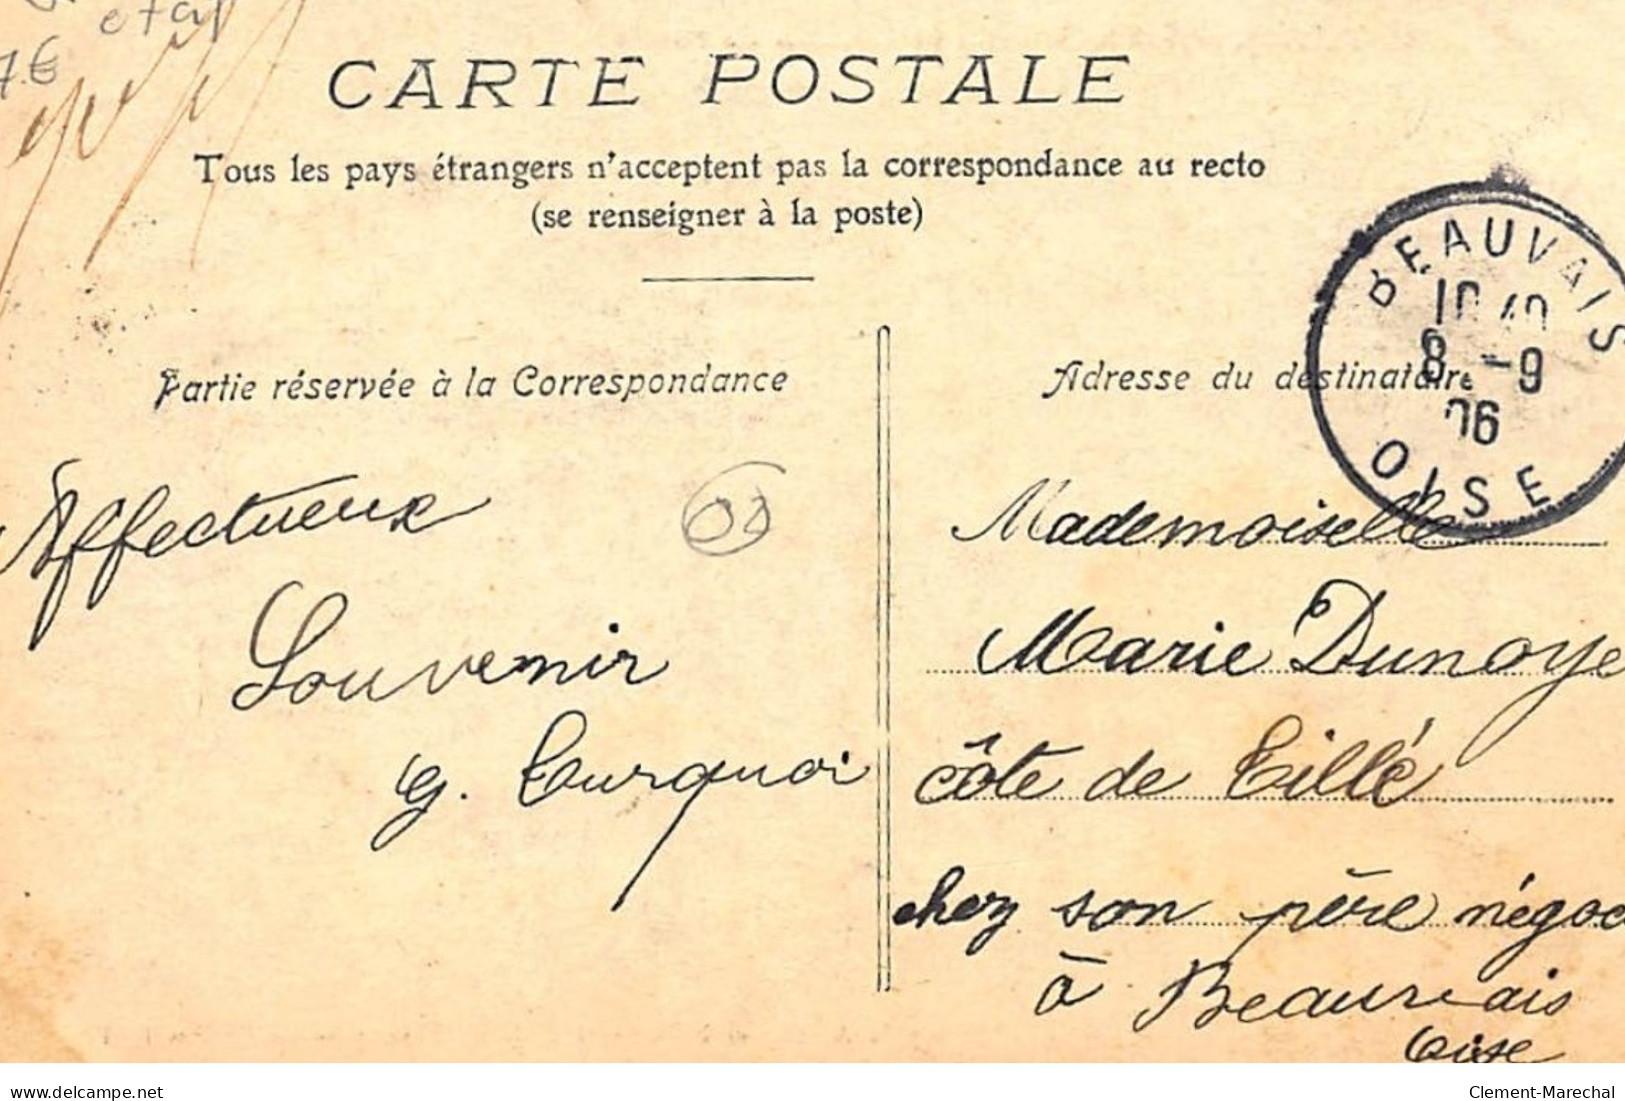 7.€
CARTE POSTALE
Tous les pays étrangers n'acceptent pas la correspondance au recto
(se renseigner à la poste)
BEAUVAIS
10 40
8 -9
06
OISE
Partie réservée à la Correspondance
Adresse du destinataire
Affectueux
Souvenir
G. Tourquoi
03
Mademoiselle
Marie Dunoye
côte de Tillé
chez son père négoc
à Beauvais
Oise
www.delcampe.net
Clement-Marechal